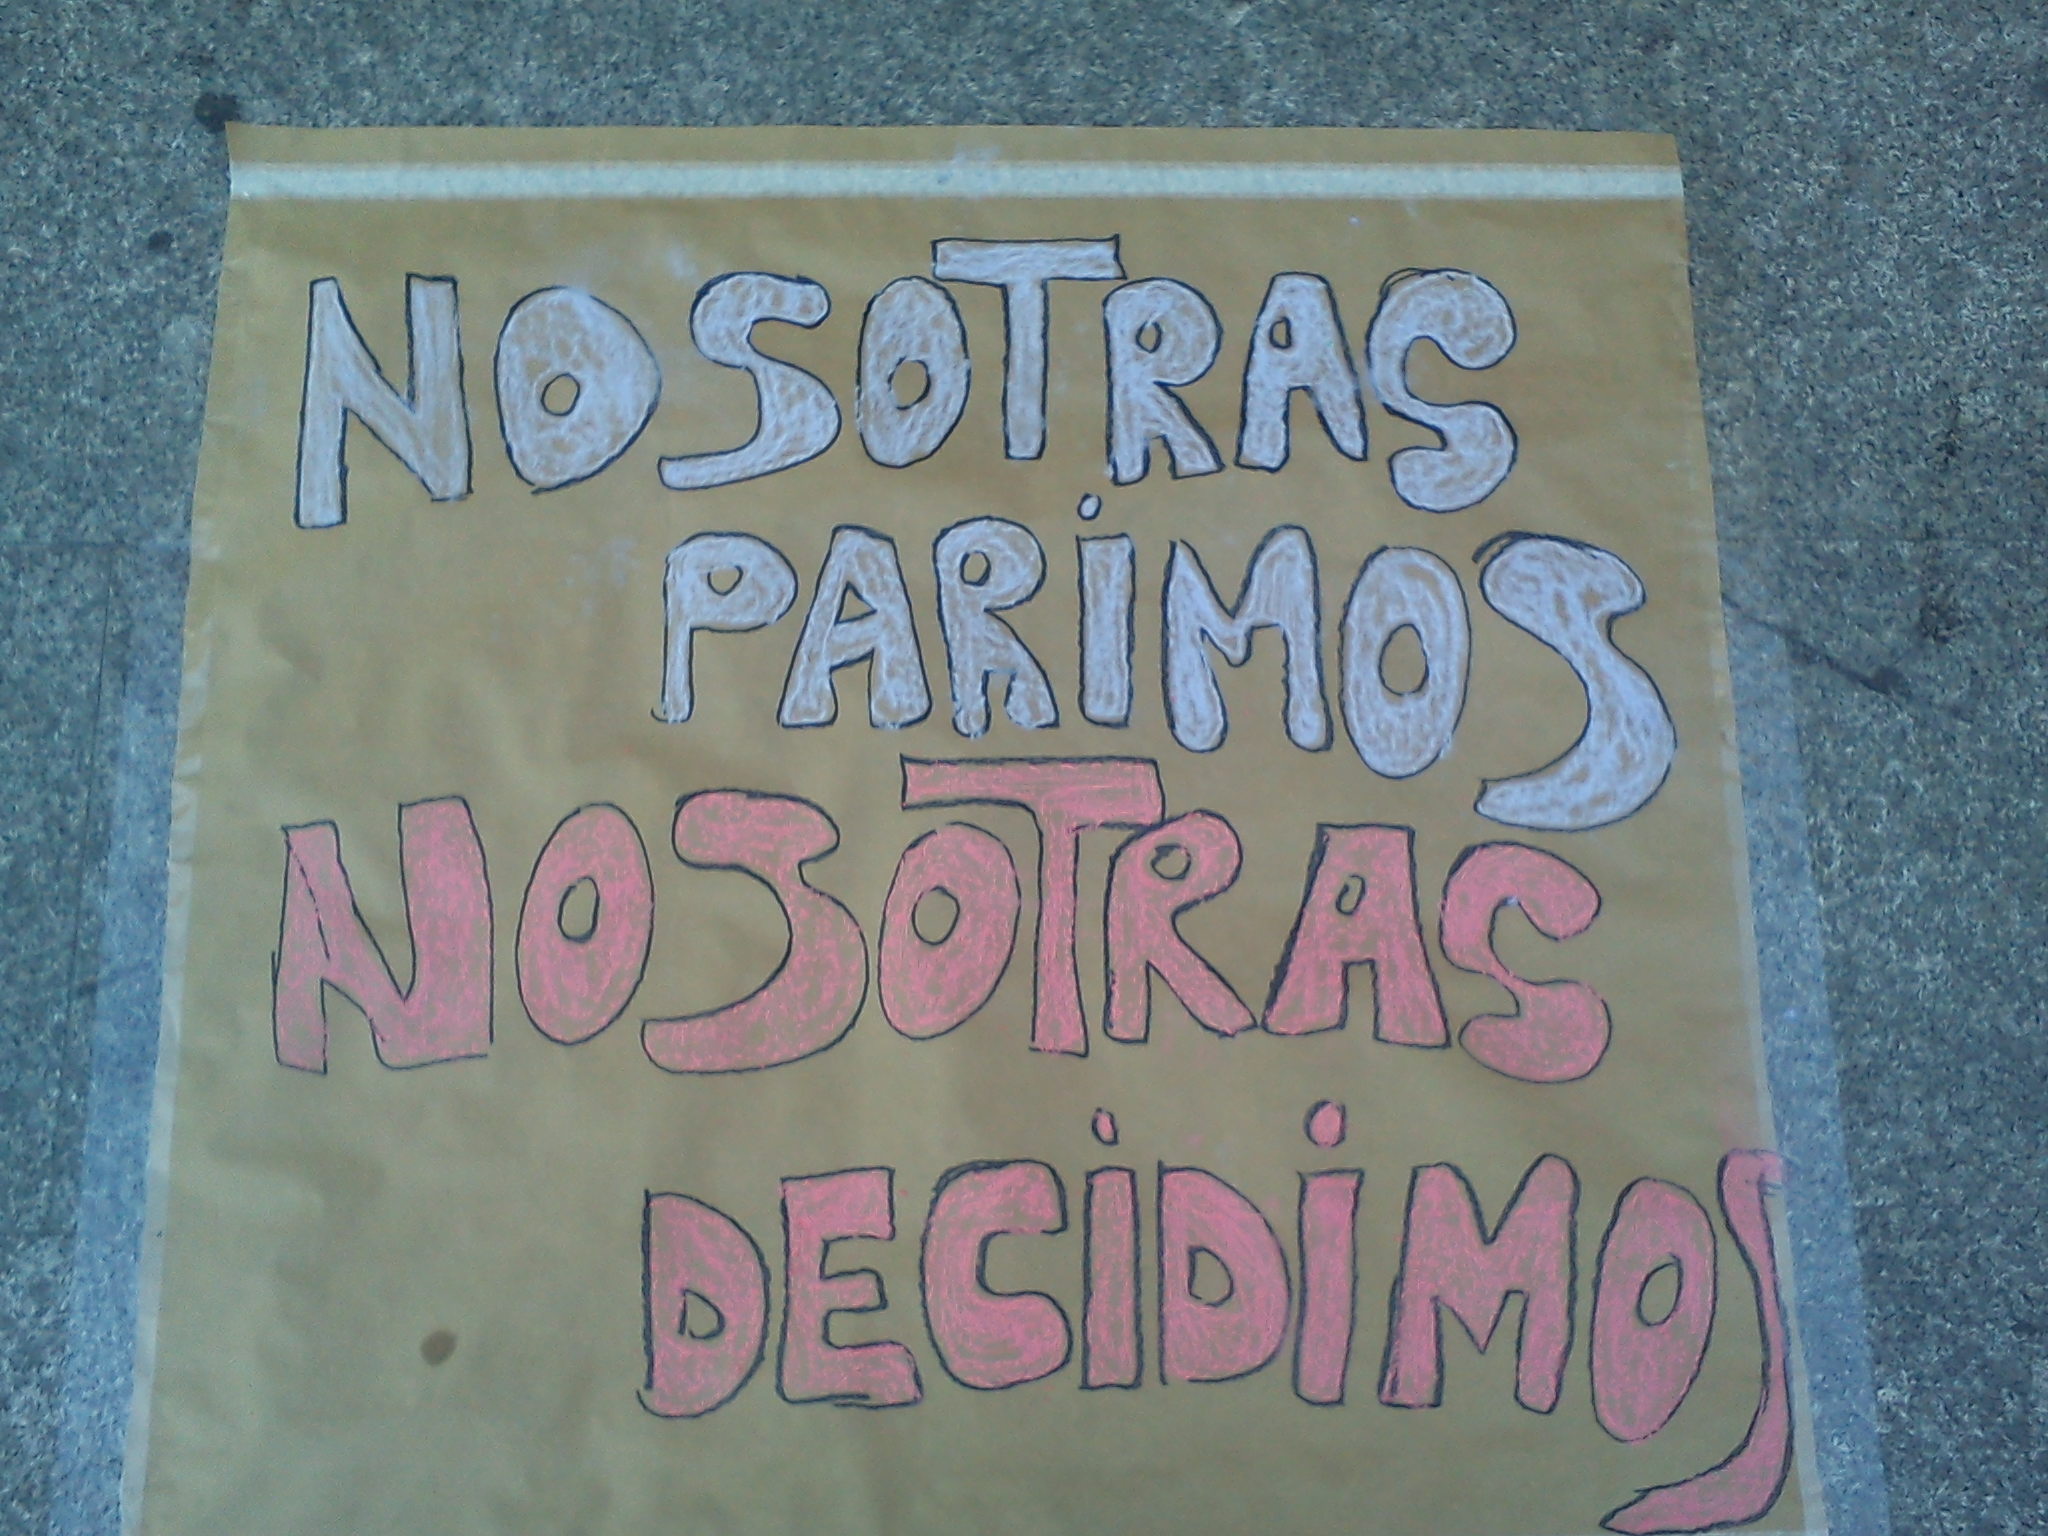 NOSOTRAS
PARiMOS
NOSOTRAS
DECiDiMOS